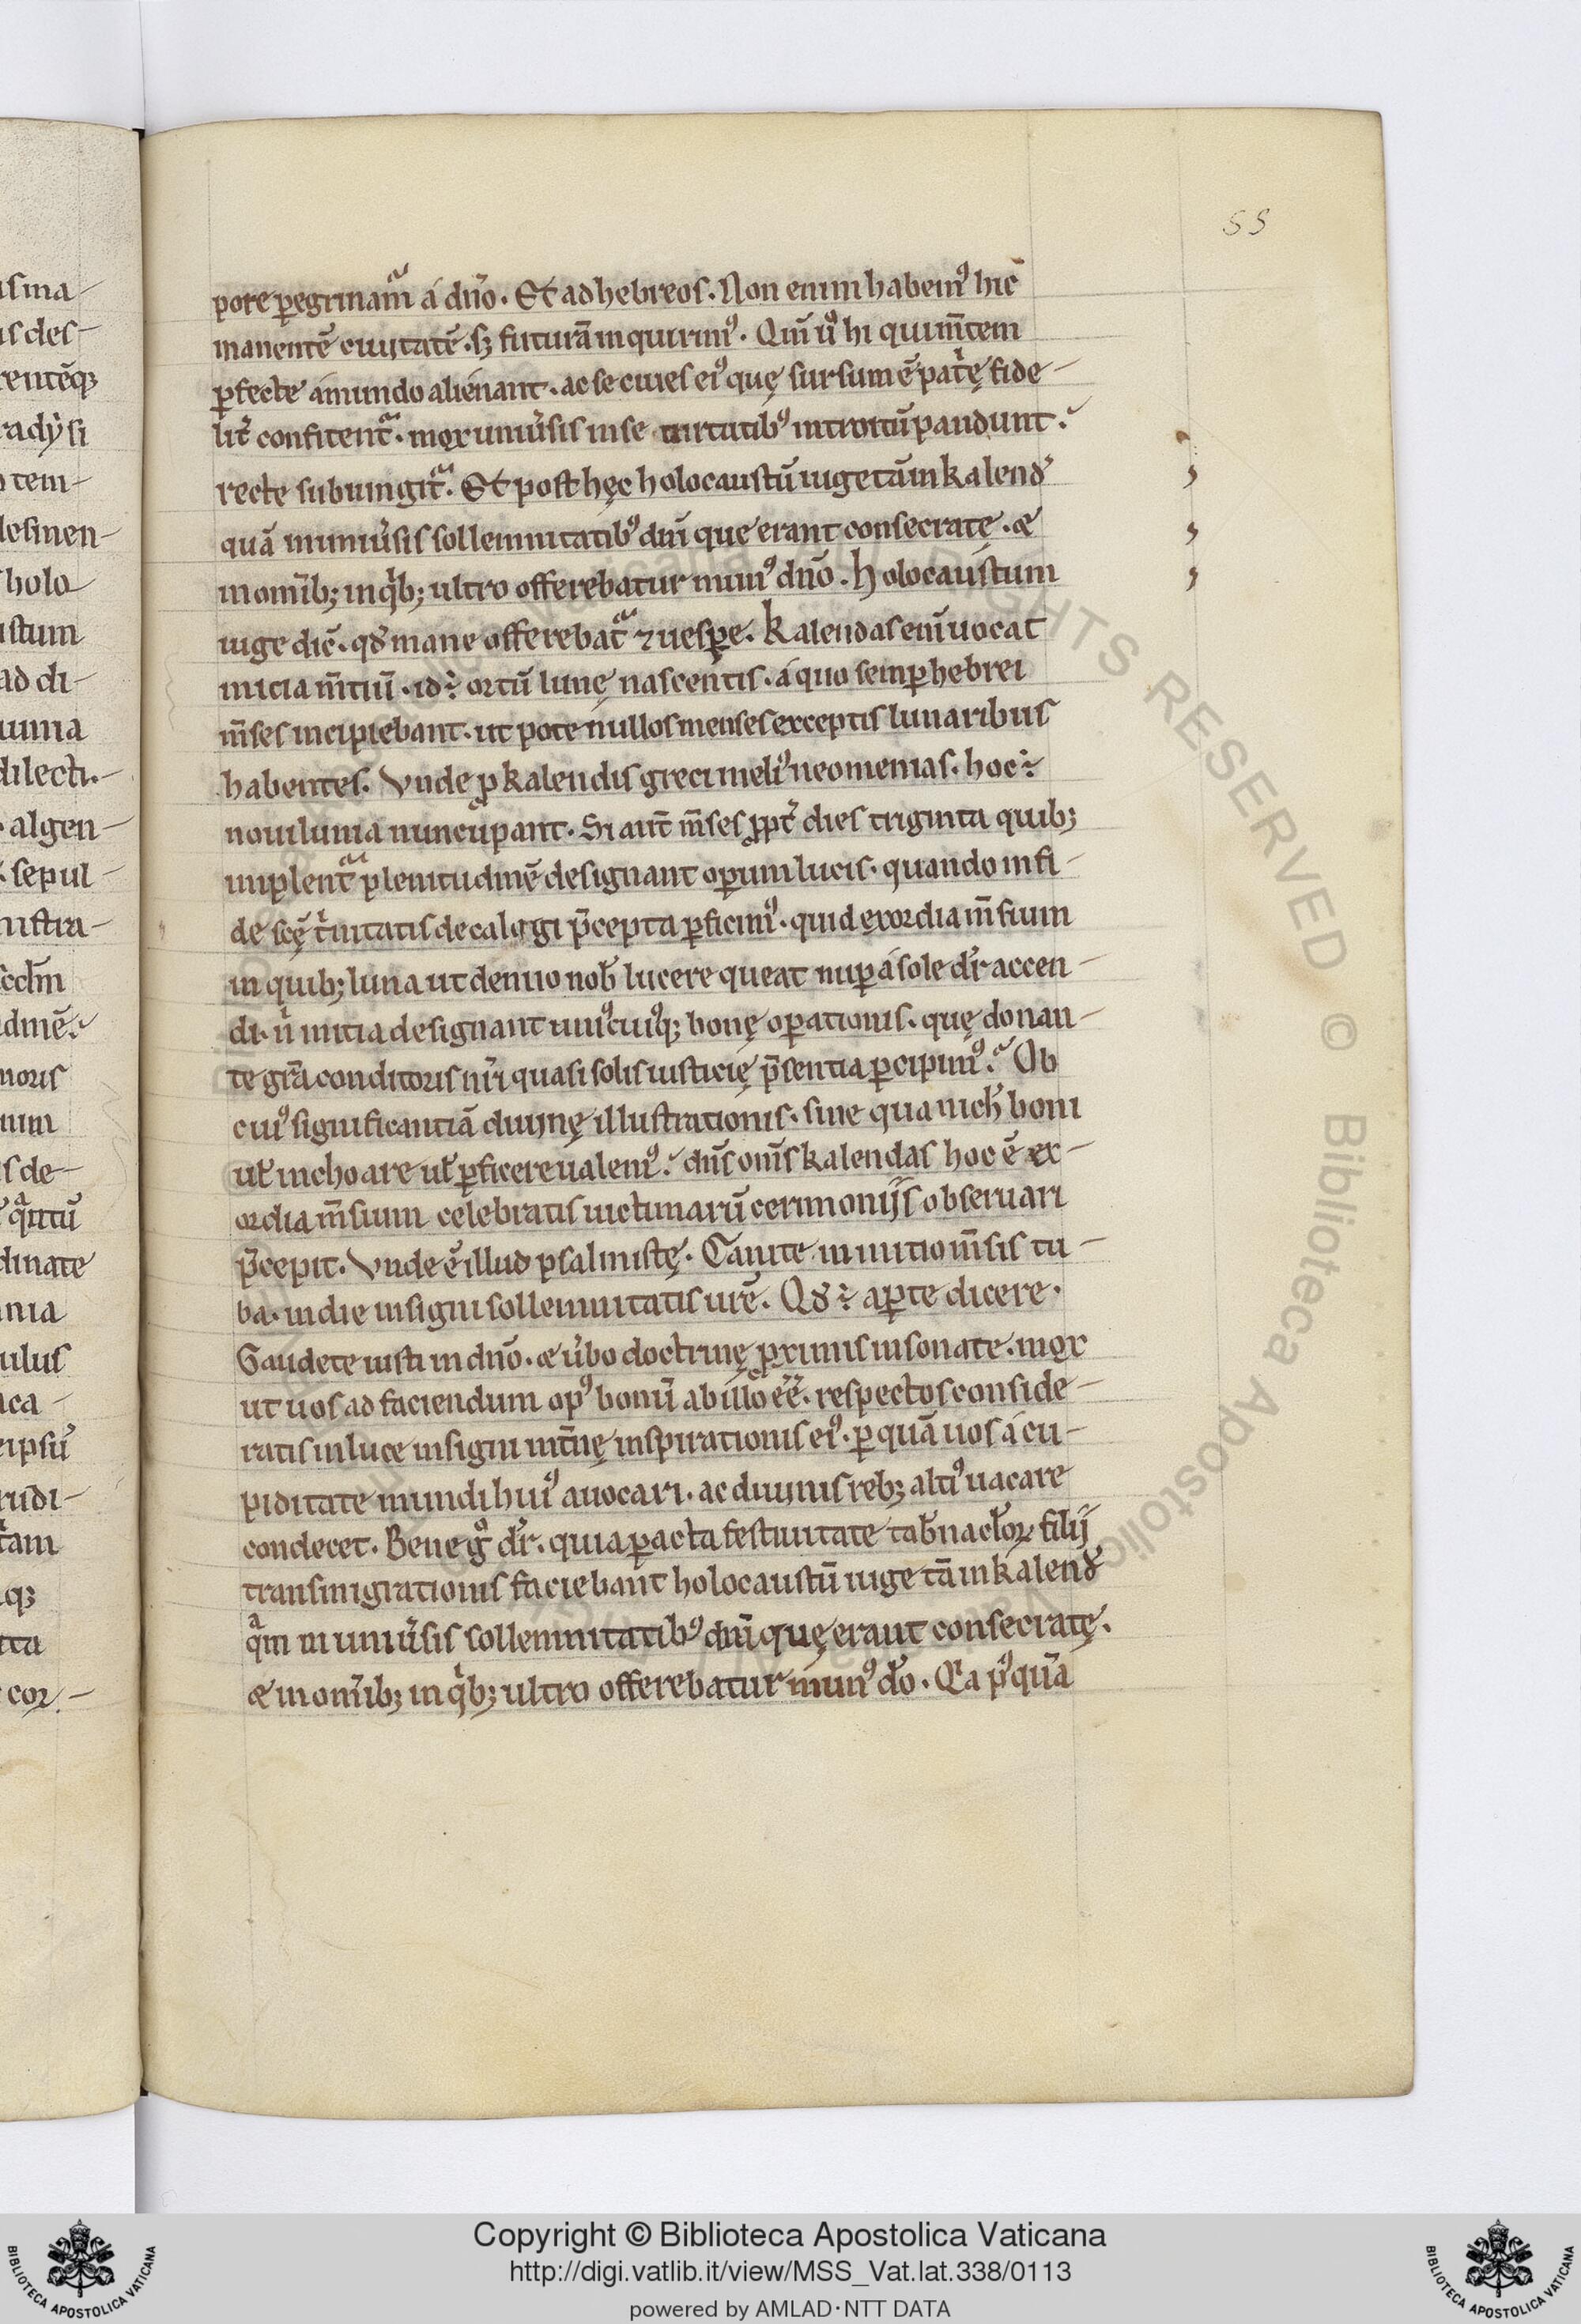 55
pore ꝑegrinam᷒ a dño. Et ad hebreos. Non enim habemꝰ hic
manentē ciuitatē. sꝫ futurā inquirimꝰ. Qm̄ ũo hi qui m̄tem
ꝑfecte a mundo alienant. ac se ciues eiꝰ quę sursum ē patrię fide-
lit̃ confitent᷒. mox uniũsis in se uirtutibꝰ introitū pandunt.
recte subiungit᷒. Et post hęc holocaustū iuge tā in kalend̾
quā in uniũsis sollemnitatibꝰ dñi que erant consecratę. &
in om̄ibꝫ in qⁱbꝫ ultro offerebatur munꝰ dño. Holocaustum
iuge dic̄. qd̾ mane offerebat᷒ ⁊ uespe. Kalendas eni͂ uocat
inicia m̄tiū. id ÷ ortū lunę nascentis. a quo semꝑ hebrei
m̄ses incipiebant. ut pote nullos menses exceptis lunaribus
habentes. Vnde ꝓ kalendis greci meliꝰ neomenias. hoc ÷
nouilunia nuncupant. Si aut̄ m̄ses ꝓpt̃ dies triginta quibꝫ
implent᷒ plenitudinē designant oꝑum lucis. quando in fi-
de scę tⁱnitatis decalogi p̄cepta ꝑficimꝰ. quid exordia m̄sium
in quibꝫ luna ut denuo nob̄ lucere queat nuꝑ a sole dr̄ accen-
di. nⁱ initia designant uniꝰcuiꝰqꝫ bonę oꝑationis. quę donan-
te gr̄a conditoris nr̄i quasi solis iusticię p̄sentia ꝑcipimꝰ. Ob
cuiꝰ significantiā diuinę illustrationis. sine qua nich̄ boni
ut̄ inchoare ut̄ ꝑficere ualemꝰ. dn̄s om̄s kalendas hoc ē ex-
ordia m̄sium celebratis uictimarū cerimoniis obseruari
p̄cepit. Vnde ē illud psalmistę. Canite in initio m̄sis tu-
ba. in die insigni sollemnitatis ur̄e. Qd̾ ÷ aꝑte dicere.
Gaudete iusti in dño. & ũbo doctrinę ꝓximis insonate. mox
ut uos ad faciendum opꝰ bonū ab illo eē. respectos conside-
ratis in luce insigni int̃nę inspirationis eiꝰ. ꝑ quā uos a cu-
piditate mundi huiꝰ auocari. ac diuinis rebꝫ altiꝰ uacare
condecet. Bene gͦ dr̄. quia ꝑacta festiuitate tab̄naclōꝝ filii
transmigrationis faciebant holocaustū iuge tā in kalend̾
qᵃm in uniũsis sollemnitatibꝰ dñi quę erant consecratę.
& in om̄ibꝫ in qⁱbꝫ ultro offerebatur munꝰ do̾. Ea pꝰquā
Copyright © Biblioteca Apostolica Vaticana
http://digi.vatlib.it/view/MSS_Vat.lat.338/0113
powered by AMLAD·NTT DATA